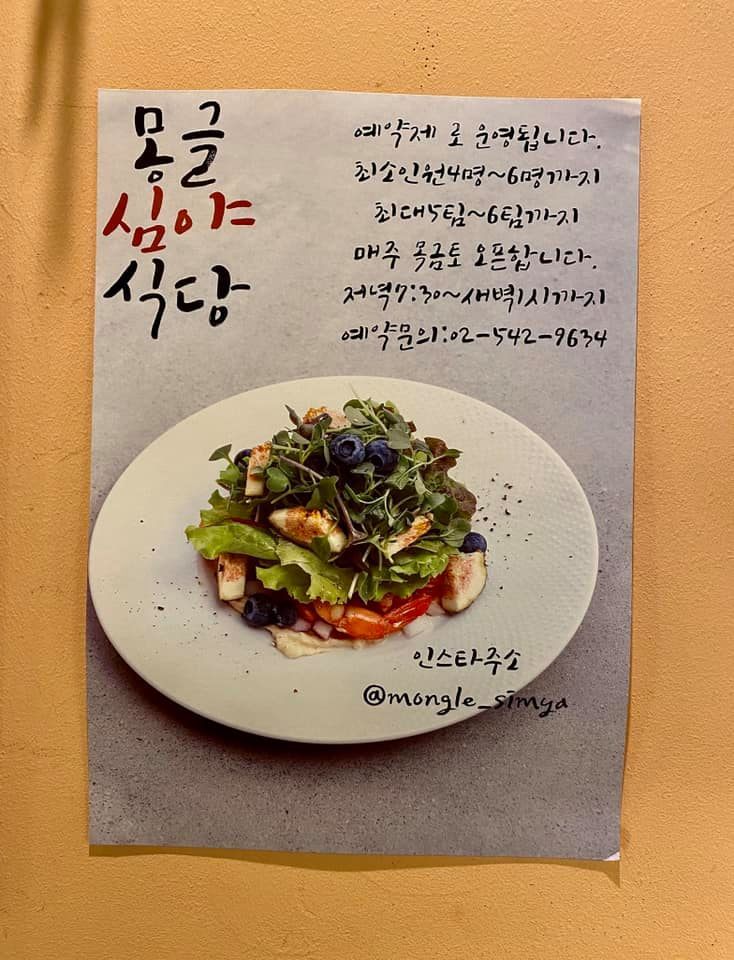 몽글
심야
식당
예약제 로 운영됩니다.
최소인원4명~6명까지
최대5팀~6팀까지
매주 목금토 오픈합니다.
저녁7:30~새벽1시까지
예약문의:02-542-9634
인스타주소
@mongle_simya